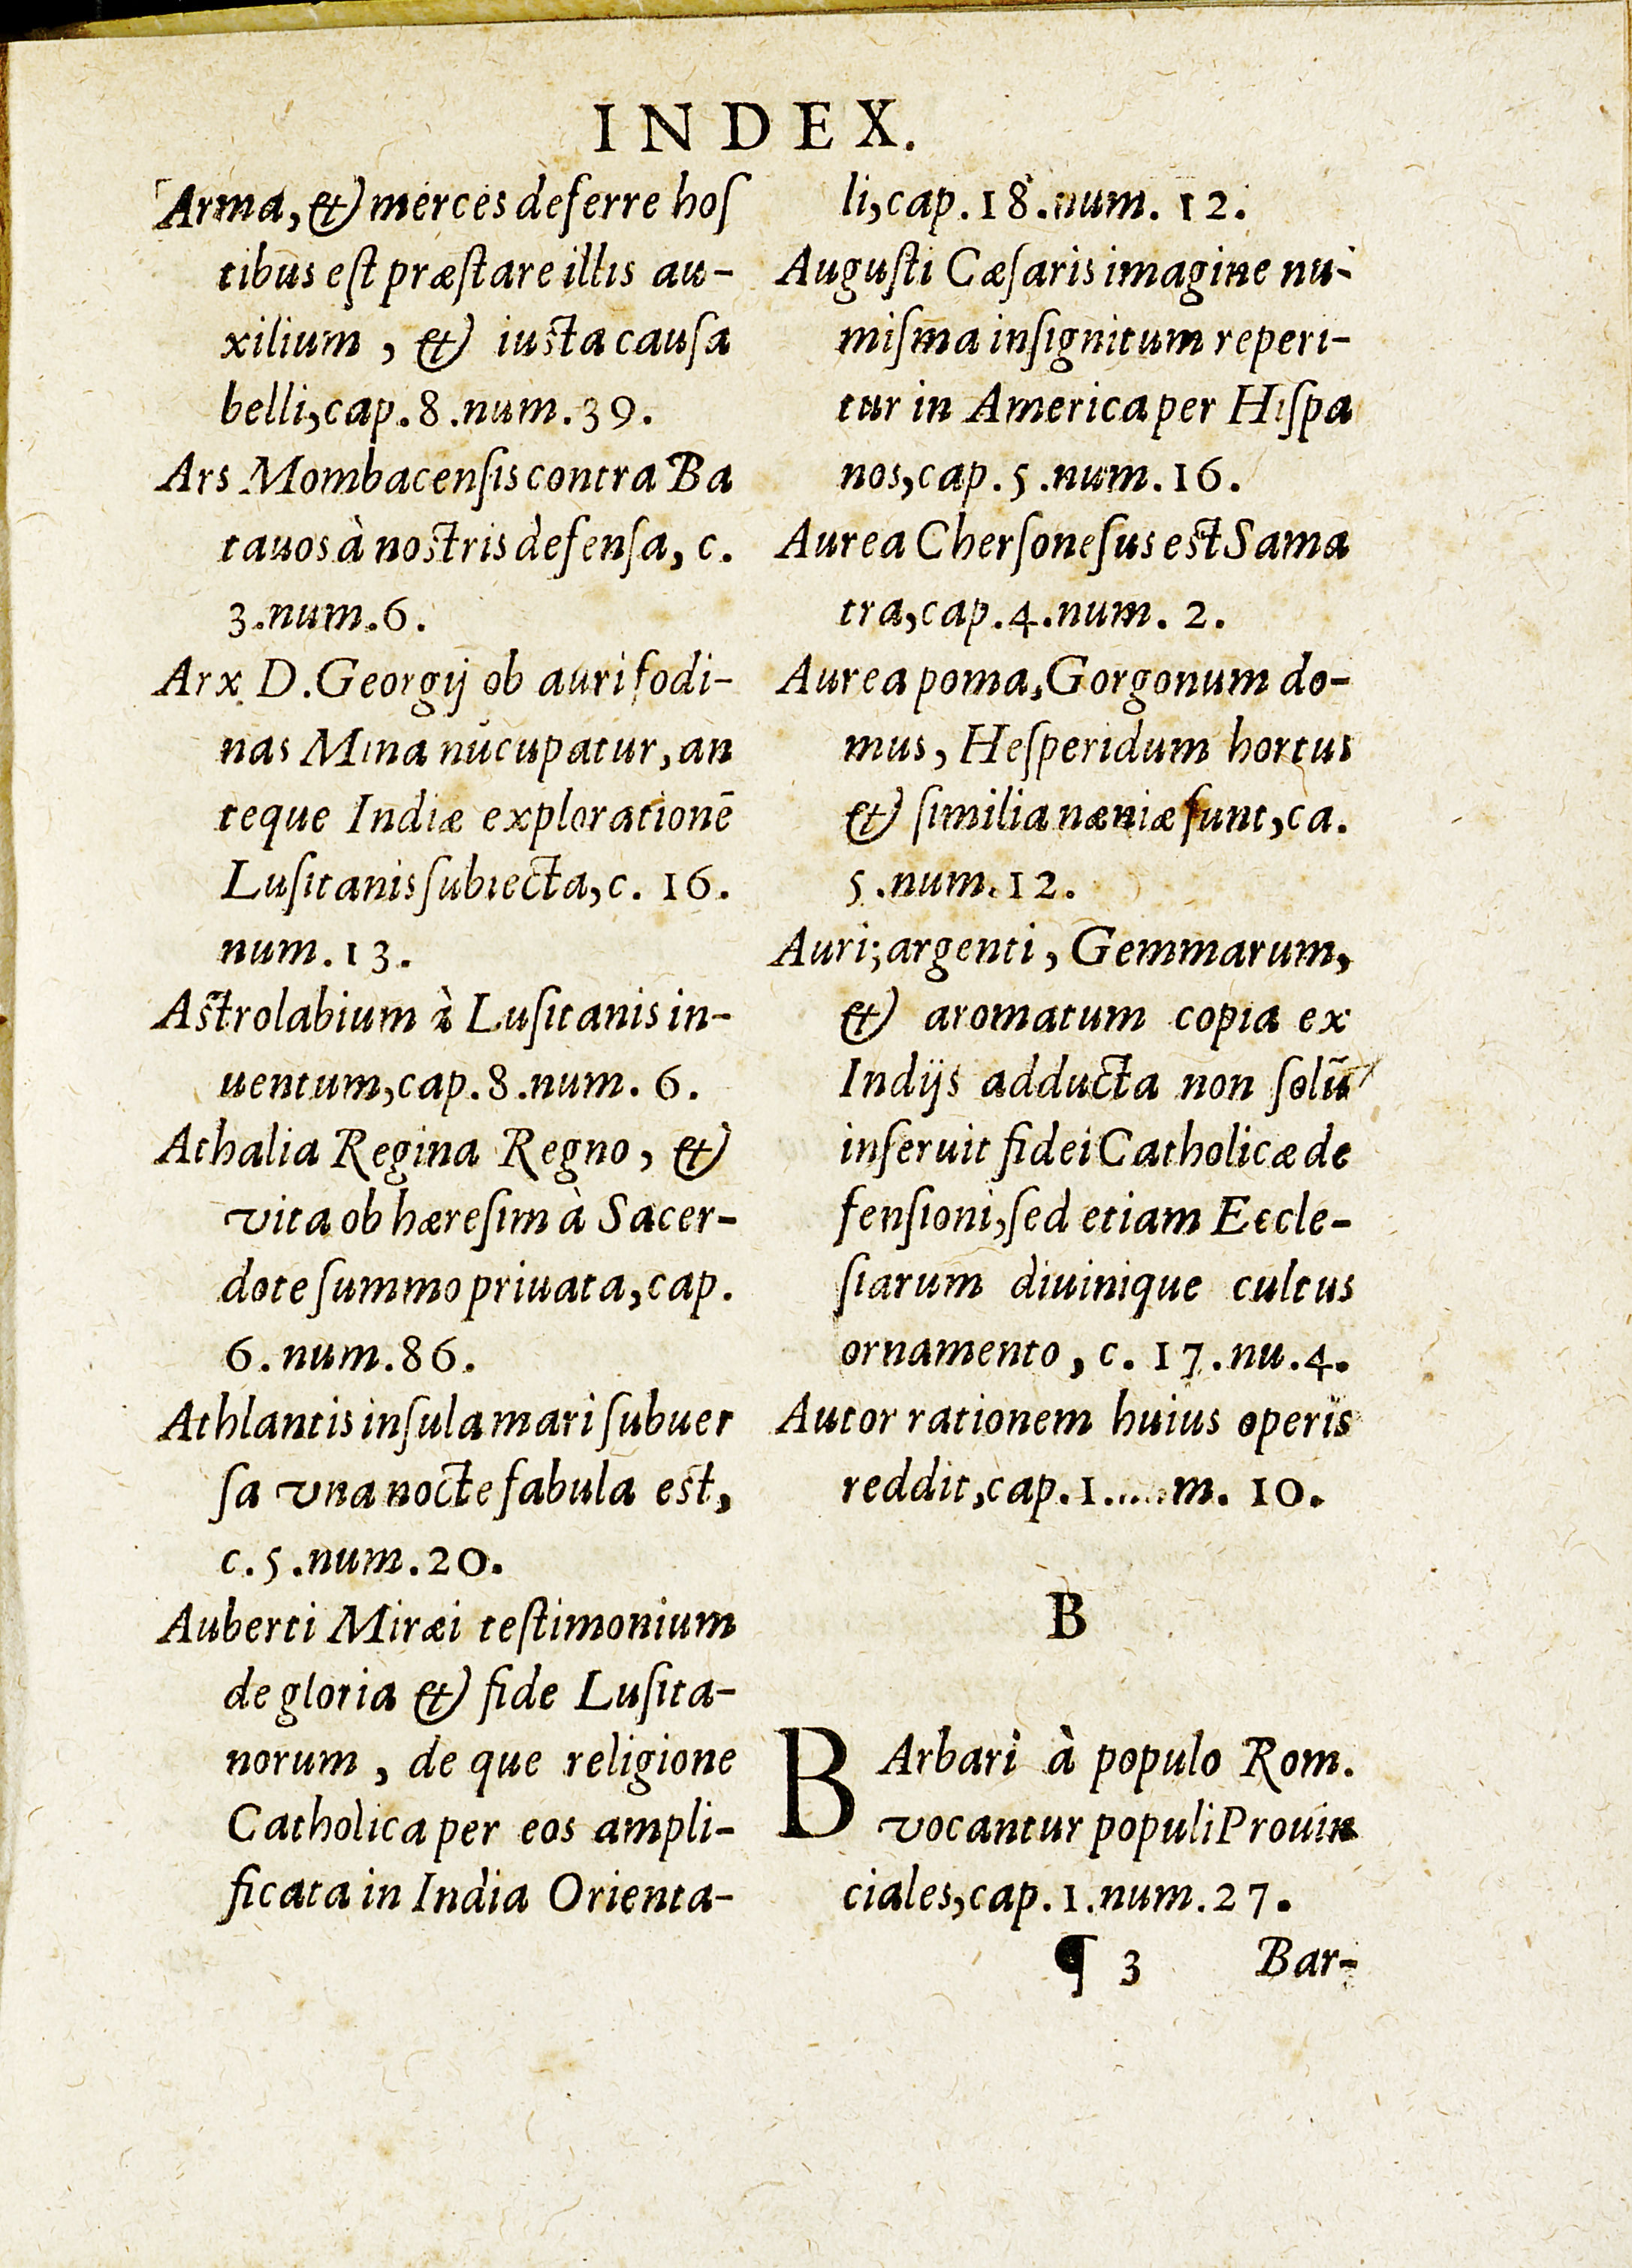 INDEX.
Arma, & merces deferre hoſ
tibus eſt præſtare illis au-
xilium, & iuſta cauſa
belli, cap. 8. num. 39.
Ars Mombacenſis contra Ba
tauos à noſtris defenſa, c.
3. num. 6.
Arx D. Georgij ob auri fodi-
nas Mina nūcupatur, an
teque Indiæ explorationē
Luſitanis ſubiecta, c. 16.
num. 13.
Aſtrolabium à Luſitanis in-
uentum, cap. 8. num. 6.
Athalia Regina Regno, &
vita ob hæreſim à Sacer-
dote ſummo priuata, cap.
6. num. 86.
Athlantis inſula mari ſubuer
ſa vna nocte fabula eſt,
c. 5. num. 20.
Auberti Miræi teſtimonium
de gloria & fide Luſita-
norum, de que religione
Catholica per eos ampli-
ficata in India Orienta-
li, cap. 18. num. 12.
Auguſti Cæſaris imagine nu-
miſma inſignitum reperi-
tur in America per Hiſpa
nos, cap. 5. num. 16.
Aurea Cherſoneſus eſt Sama
tra, cap. 4. num. 2.
Aurea poma, Gorgonum do-
mus, Heſperidum hortus
& ſimilia næniæ ſunt, ca.
5. num. 12.
Auri; argenti, Gemmarum,
& aromatum copia ex
Indijs adducta non ſolū
inſeruit fidei Catholicæ de
fenſioni, ſed etiam Eccle-
ſiarum diuinique cultus
ornamento, c. 17. nu. 4.
Autor rationem huius operis
reddit, cap. 1. 10.
B
BArbari à populo Rom.
vocantur populi Prouin
ciales, cap. 1. num. 27.
¶ 3 Bar-